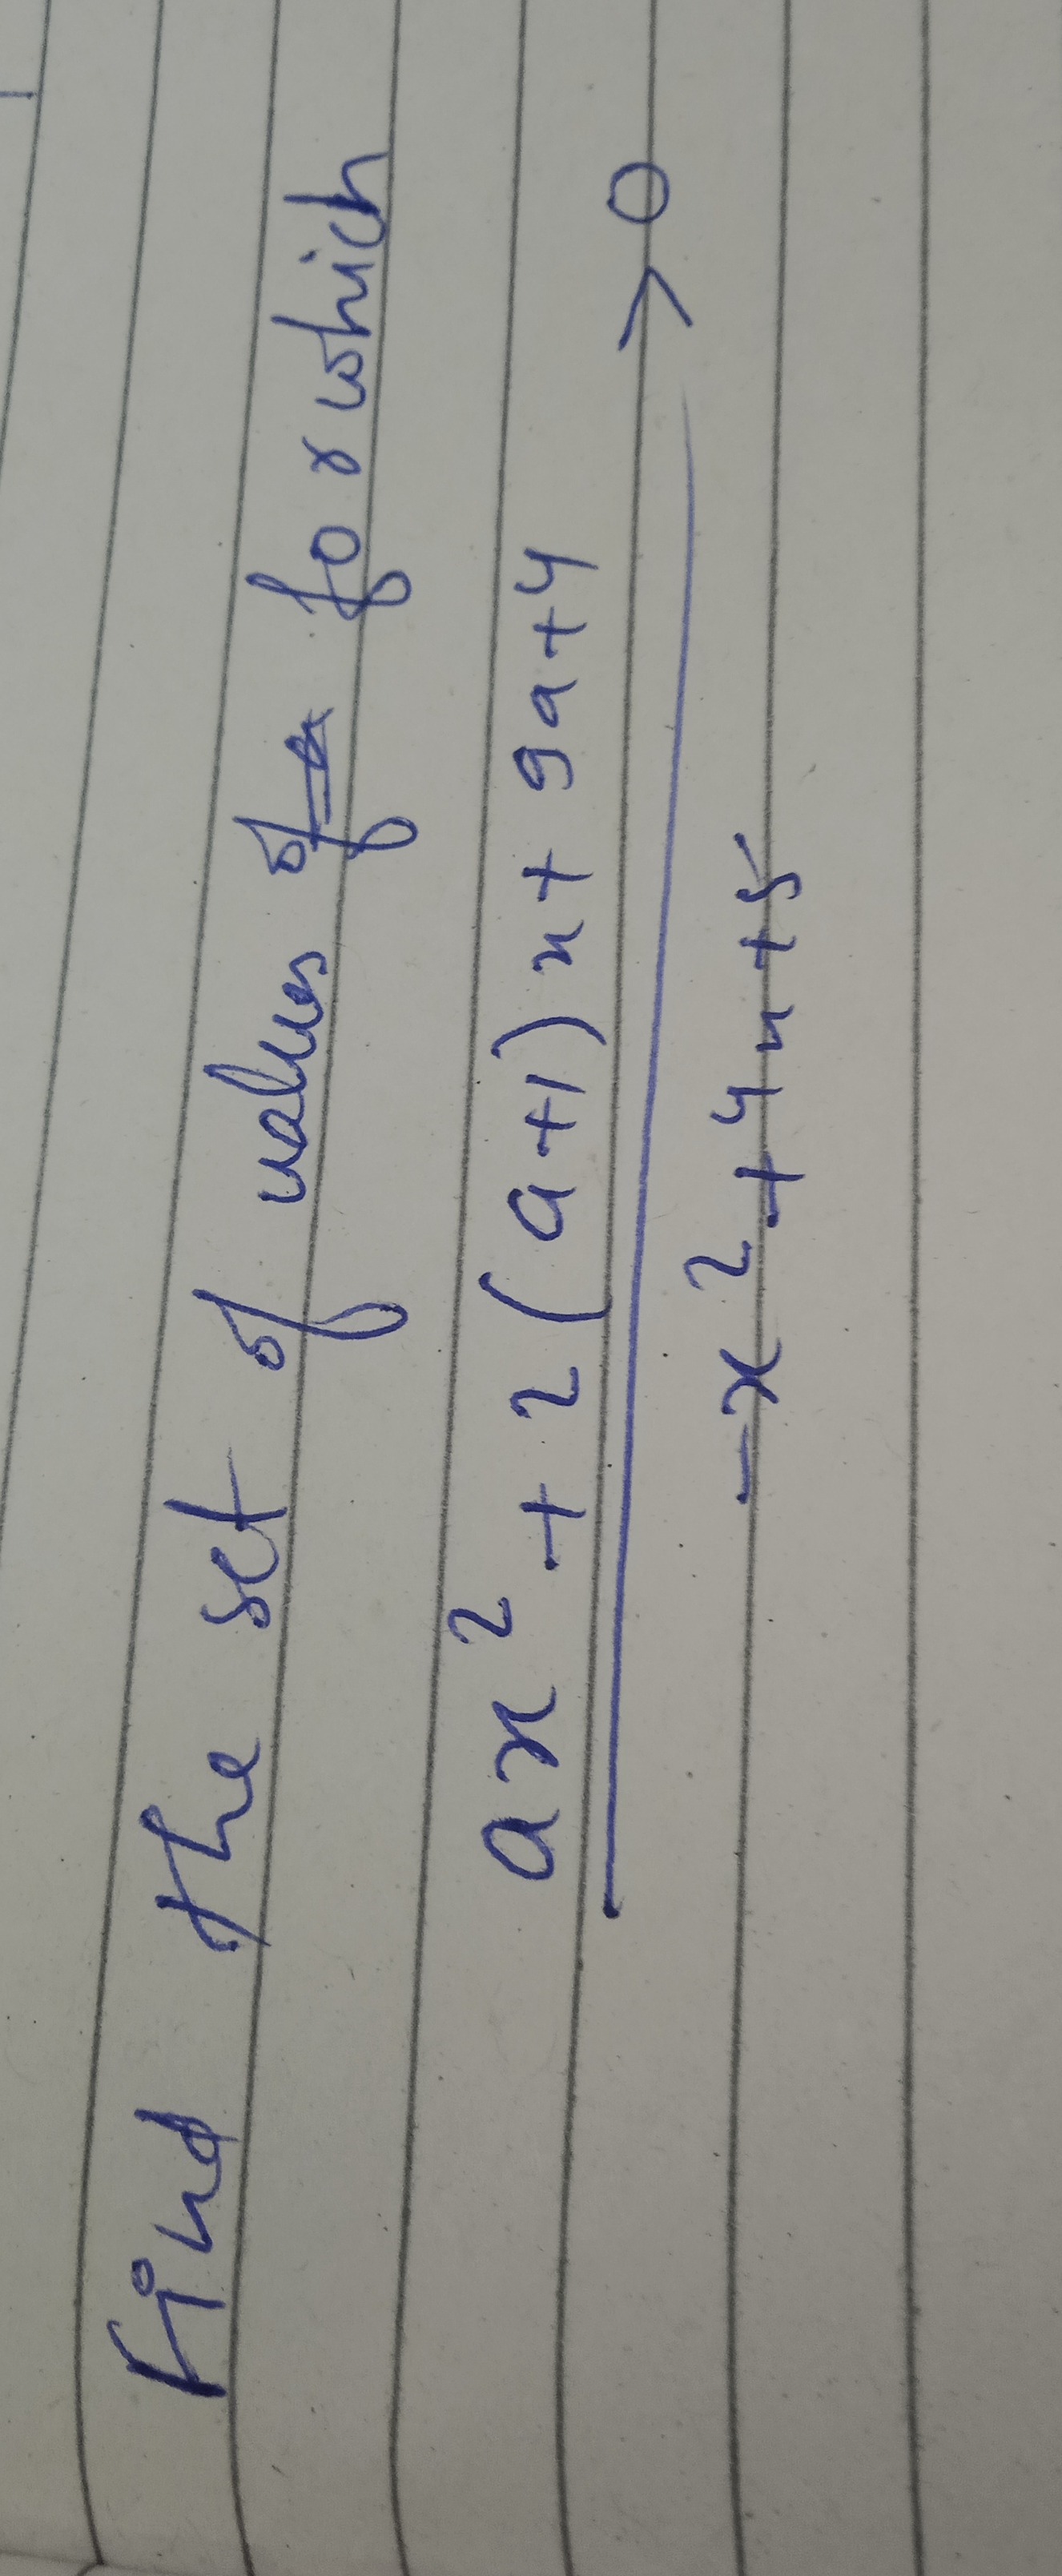 Find the set of values of a for which
ax² + 2(a+1)x + 9a+4
——————————— > 0
-x² + 4x + 5